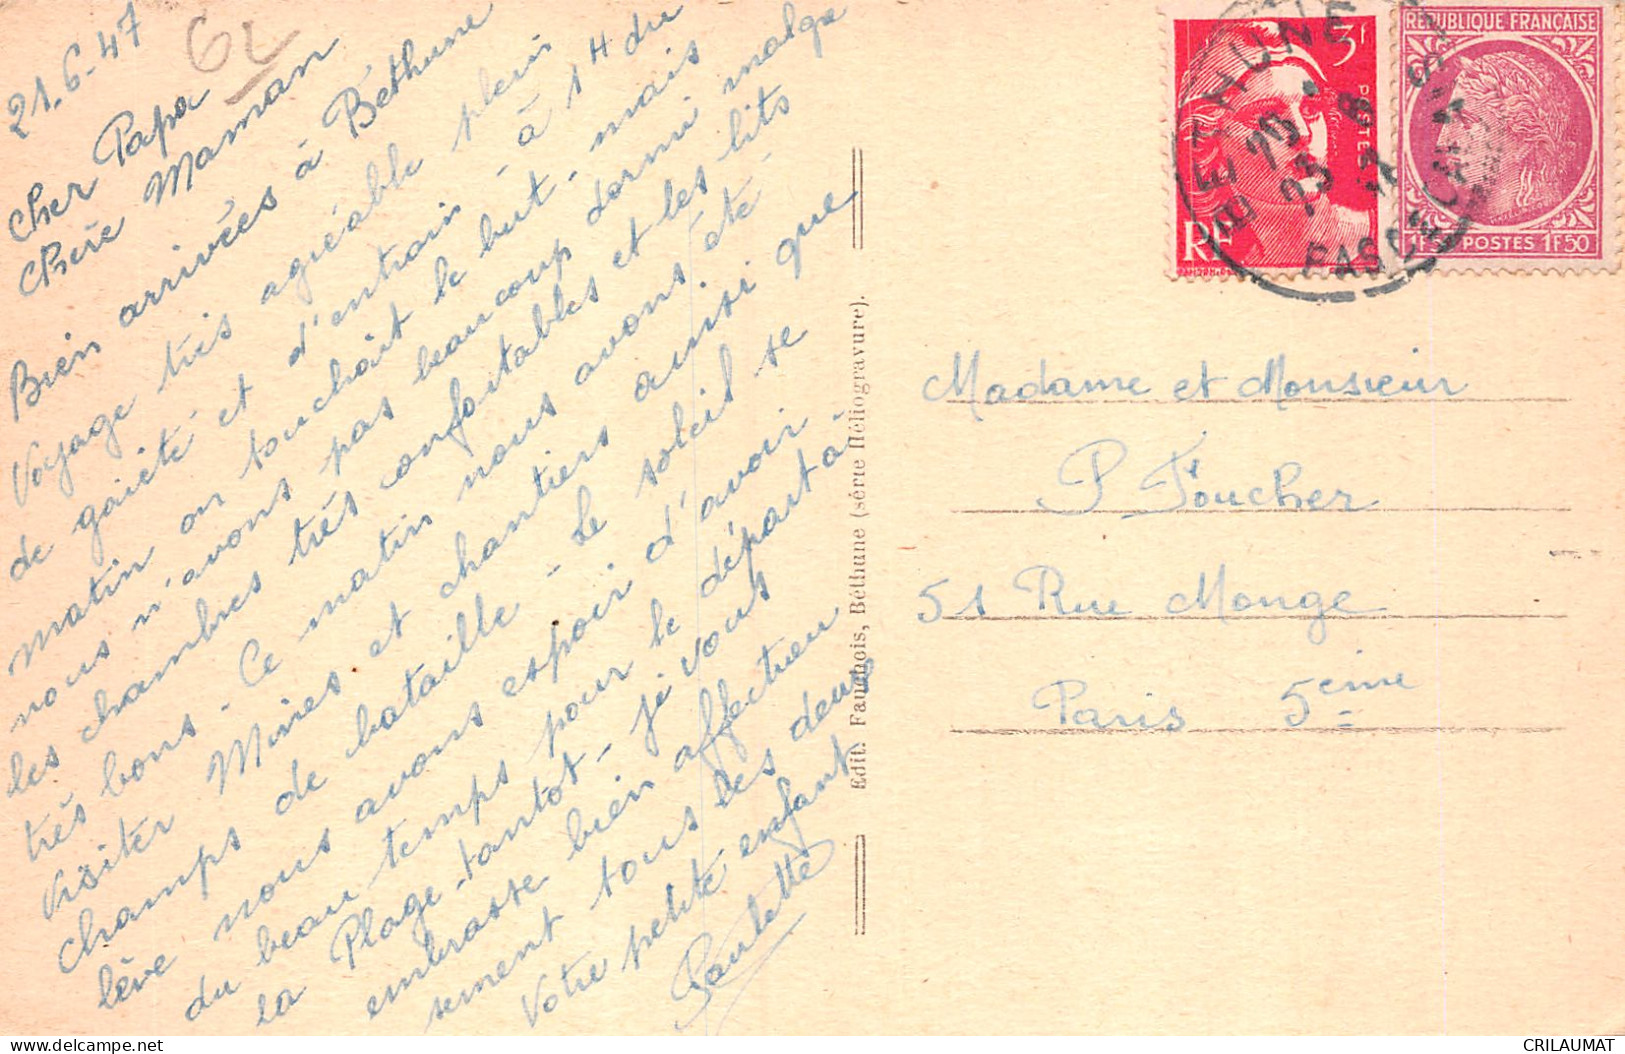 21.6.47
62
Cher Papa
Chère Maman
Bien arrivées à Béthune
Voyage très agréable plein
de gaieté et d'entrain à 1H du
matin on touchait le but - mais
nous n'avons pas beaucoup dormi malgré
les chambres très confortables et les lits
très bons - Ce matin nous avons été
visiter Mines et chantiers ainsi que
champs de bataille - le soleil se
lève nous avons espoir d'avoir
du beau temps pour le départ à
la Plage - tantôt - je vous
embrasse bien affectueu
sement tous les deux
Votre petite enfant
Paulette
Edit. Fauchois, Béthune (série Héliogravure).
3F
POSTES
RF
RÉPUBLIQUE FRANÇAISE
1F50 POSTES 1F50
BETHUNE
PAS DE CALAIS
Madame et Monsieur
P. Foucher
51 Rue Monge
Paris 5eme
CRILAUMAT